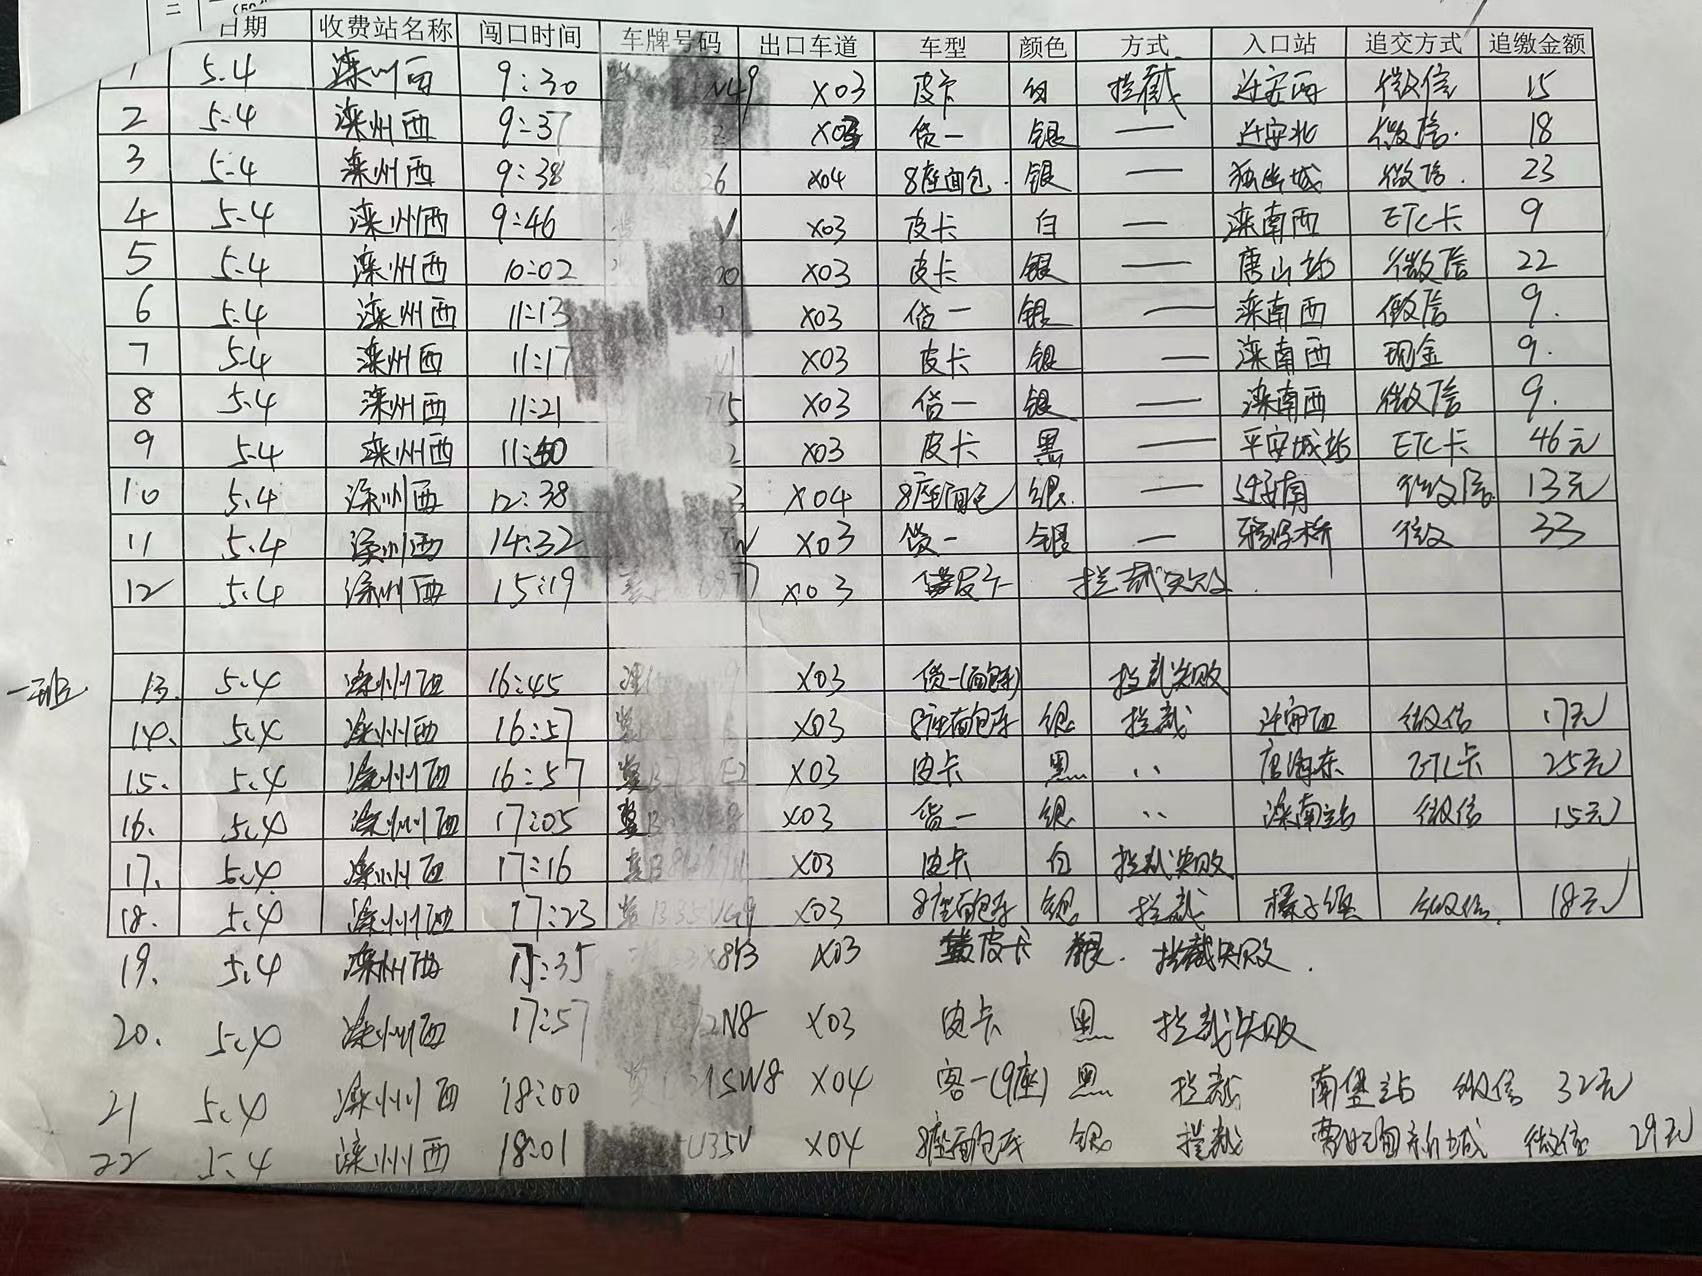 二
日期 收费站名称 闯口时间 车牌号码 出口车道 车型 颜色 方式 入口站 追交方式 追缴金额
1 5.4 滦州西 9:30 N49 X03 皮卡 白 拦截 迁安西 微信 15
2 5.4 滦州西 9:37 X03 货一 银 — 迁安北 微信. 18
3 5.4 滦州西 9:38 26 X04 8座面包. 银 — 城 微信. 23
4 5.4 滦州西 9:46 V X03 皮卡 白 — 滦南西 ETC卡 9
5 5.4 滦州西 10:02 X03 皮卡 银 — 唐山站 微信 22
6 5.4 滦州西 11:13 X03 货一 银 — 滦南西 微信 9.
7 5.4 滦州西 11:17 X03 皮卡 银 — 滦南西 现金 9.
8 5.4 滦州西 11:21 X03 货一 银 — 滦南西 微信 9.
9 5.4 滦州西 X03 皮卡 黑 — 平安城站 ETC卡 46元
10 5.4 滦州西 12:38 X04 8座面包 银. — 微信. 13元
11 5.4 滦州西 14:32 X03 货一 银 — 微 33
12 5.4 滦州西 15:19 X03 皮卡 拦截失败.
一班 13. 5.4 滦州西 16:45 X03 货一(面包车) 拦截失败
14. 5.4 滦州西 16:57 X03 8座面包车 银. 拦截 迁安西 微信 17元
15. 5.4 滦州西 16:57 冀B E2 X03 皮卡 黑 〃 ETC卡 25元
16. 5.4 滦州西 17:05 冀B X03 货一 银 〃 滦南站 微信 15元
17. 5.4 滦州西 17:16 X03 皮卡 白 拦截失败
18. 5.4 滦州西 17:23 冀B35VG9 X03 8座面包车 银 拦截 微信. 18元
19. 5.4 滦州西 X03 皮卡 银. 拦截失败.
20. 5.4 滦州西 17:57 2N8 X03 皮卡 黑 拦截失败
21 5.4 滦州西 18:00 SW8 X04 客一(9座) 黑 拦截 南堡站 微信 32元
22 5.4 滦州西 18:01 U35V X04 8座面包车 银 拦截 曹妃甸新城 微信 29元